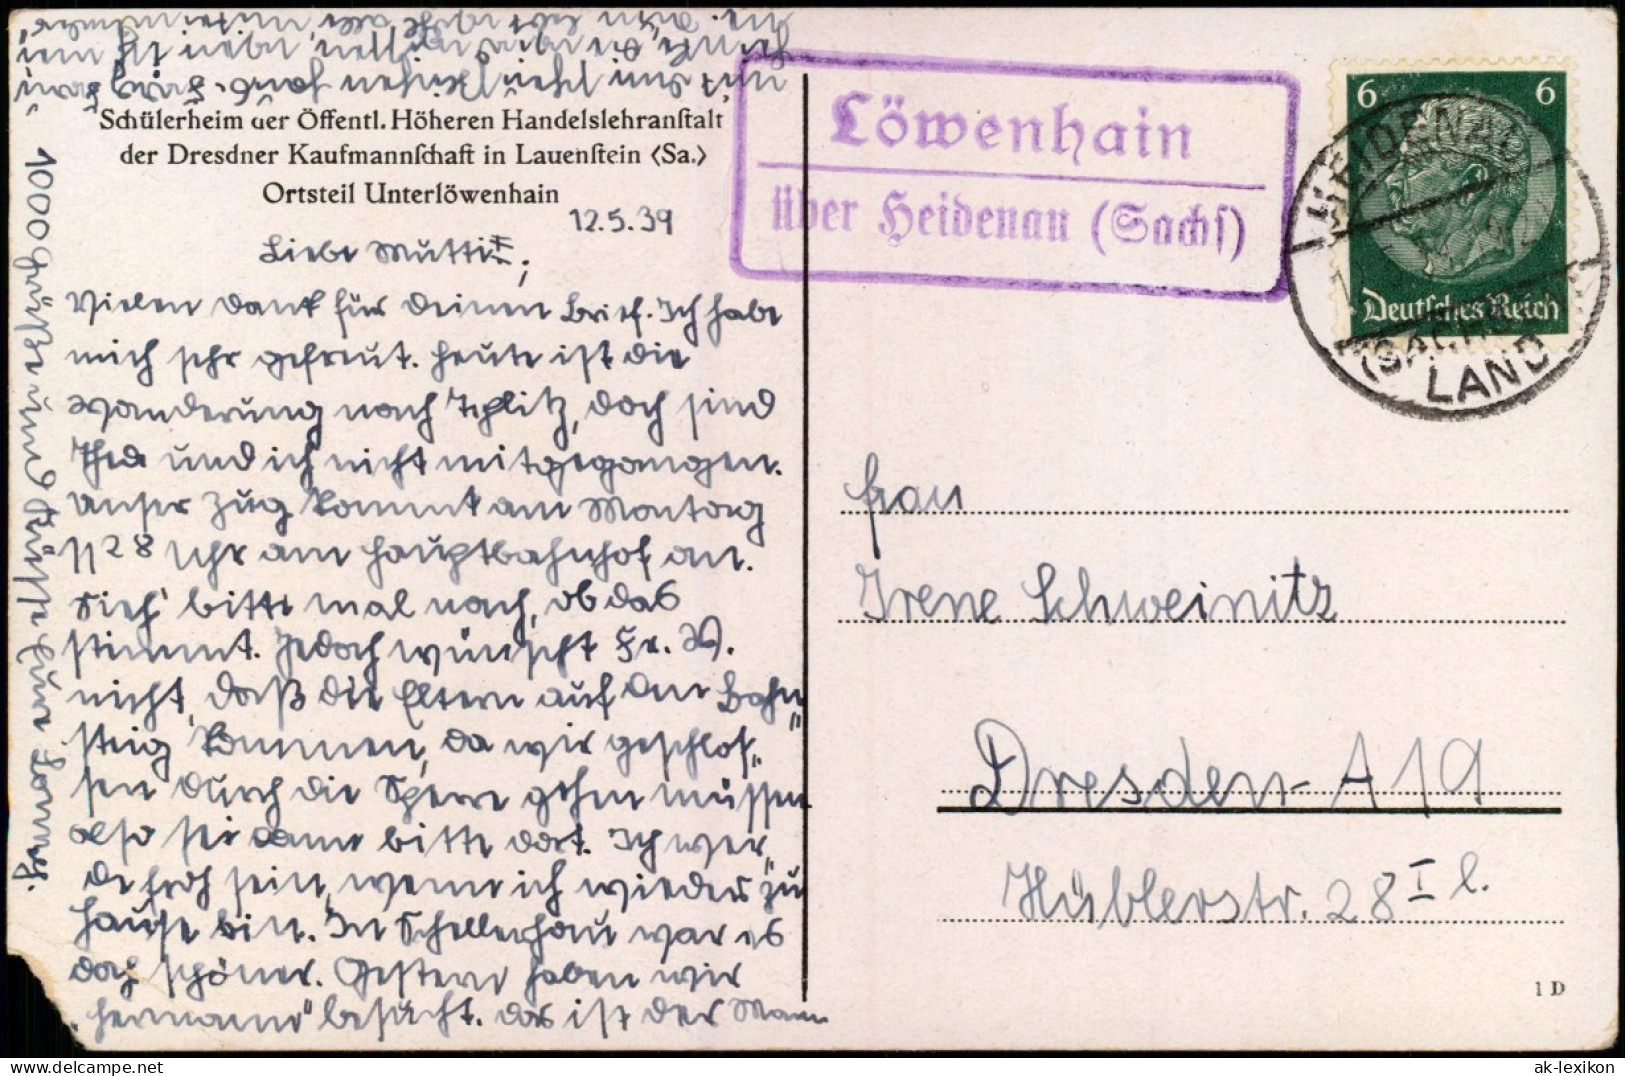 Schülerheim der Öffentl. Höheren Handelslehranstalt
der Dresdner Kaufmannschaft in Lauenstein (Sa.)
Ortsteil Unterlöwenhain
12.5.39
Liebe Mutti,
Vielen Dank für Deinen Brief. Ich habe
mich sehr gefreut. Heute ist die
Wanderung nach Teplitz, doch sind
Thea und ich nicht mitgegangen.
Unser Zug kommt am Montag
1128 Uhr am Hauptbahnhof an.
Sieh' bitte mal nach, ob das
stimmt. Jedoch wünscht Fr. W.
nicht, daß die Eltern auf den Bahn„
steig kommen, da wir geschlos„
sen durch die Sperre gehen müssen
also sei dann bitte dort. Ich wer„
de froh sein, wenn ich wieder zu
Hause bin. In Schellerhau war es
doch schöner. Gestern haben wir
„Hermann" besucht. Das ist der Mann
mit dem
1000 Grüße und Küsse Eure
Löwenhain
über Heidenau (Sachs)
6 6
Deutsches Reich
HEIDENAU
(SACHS)
LAND
Frau
Irene Schweinitz
Dresden-A 19
Hüblerstr. 28 I l.
1 D
ak-lexikon